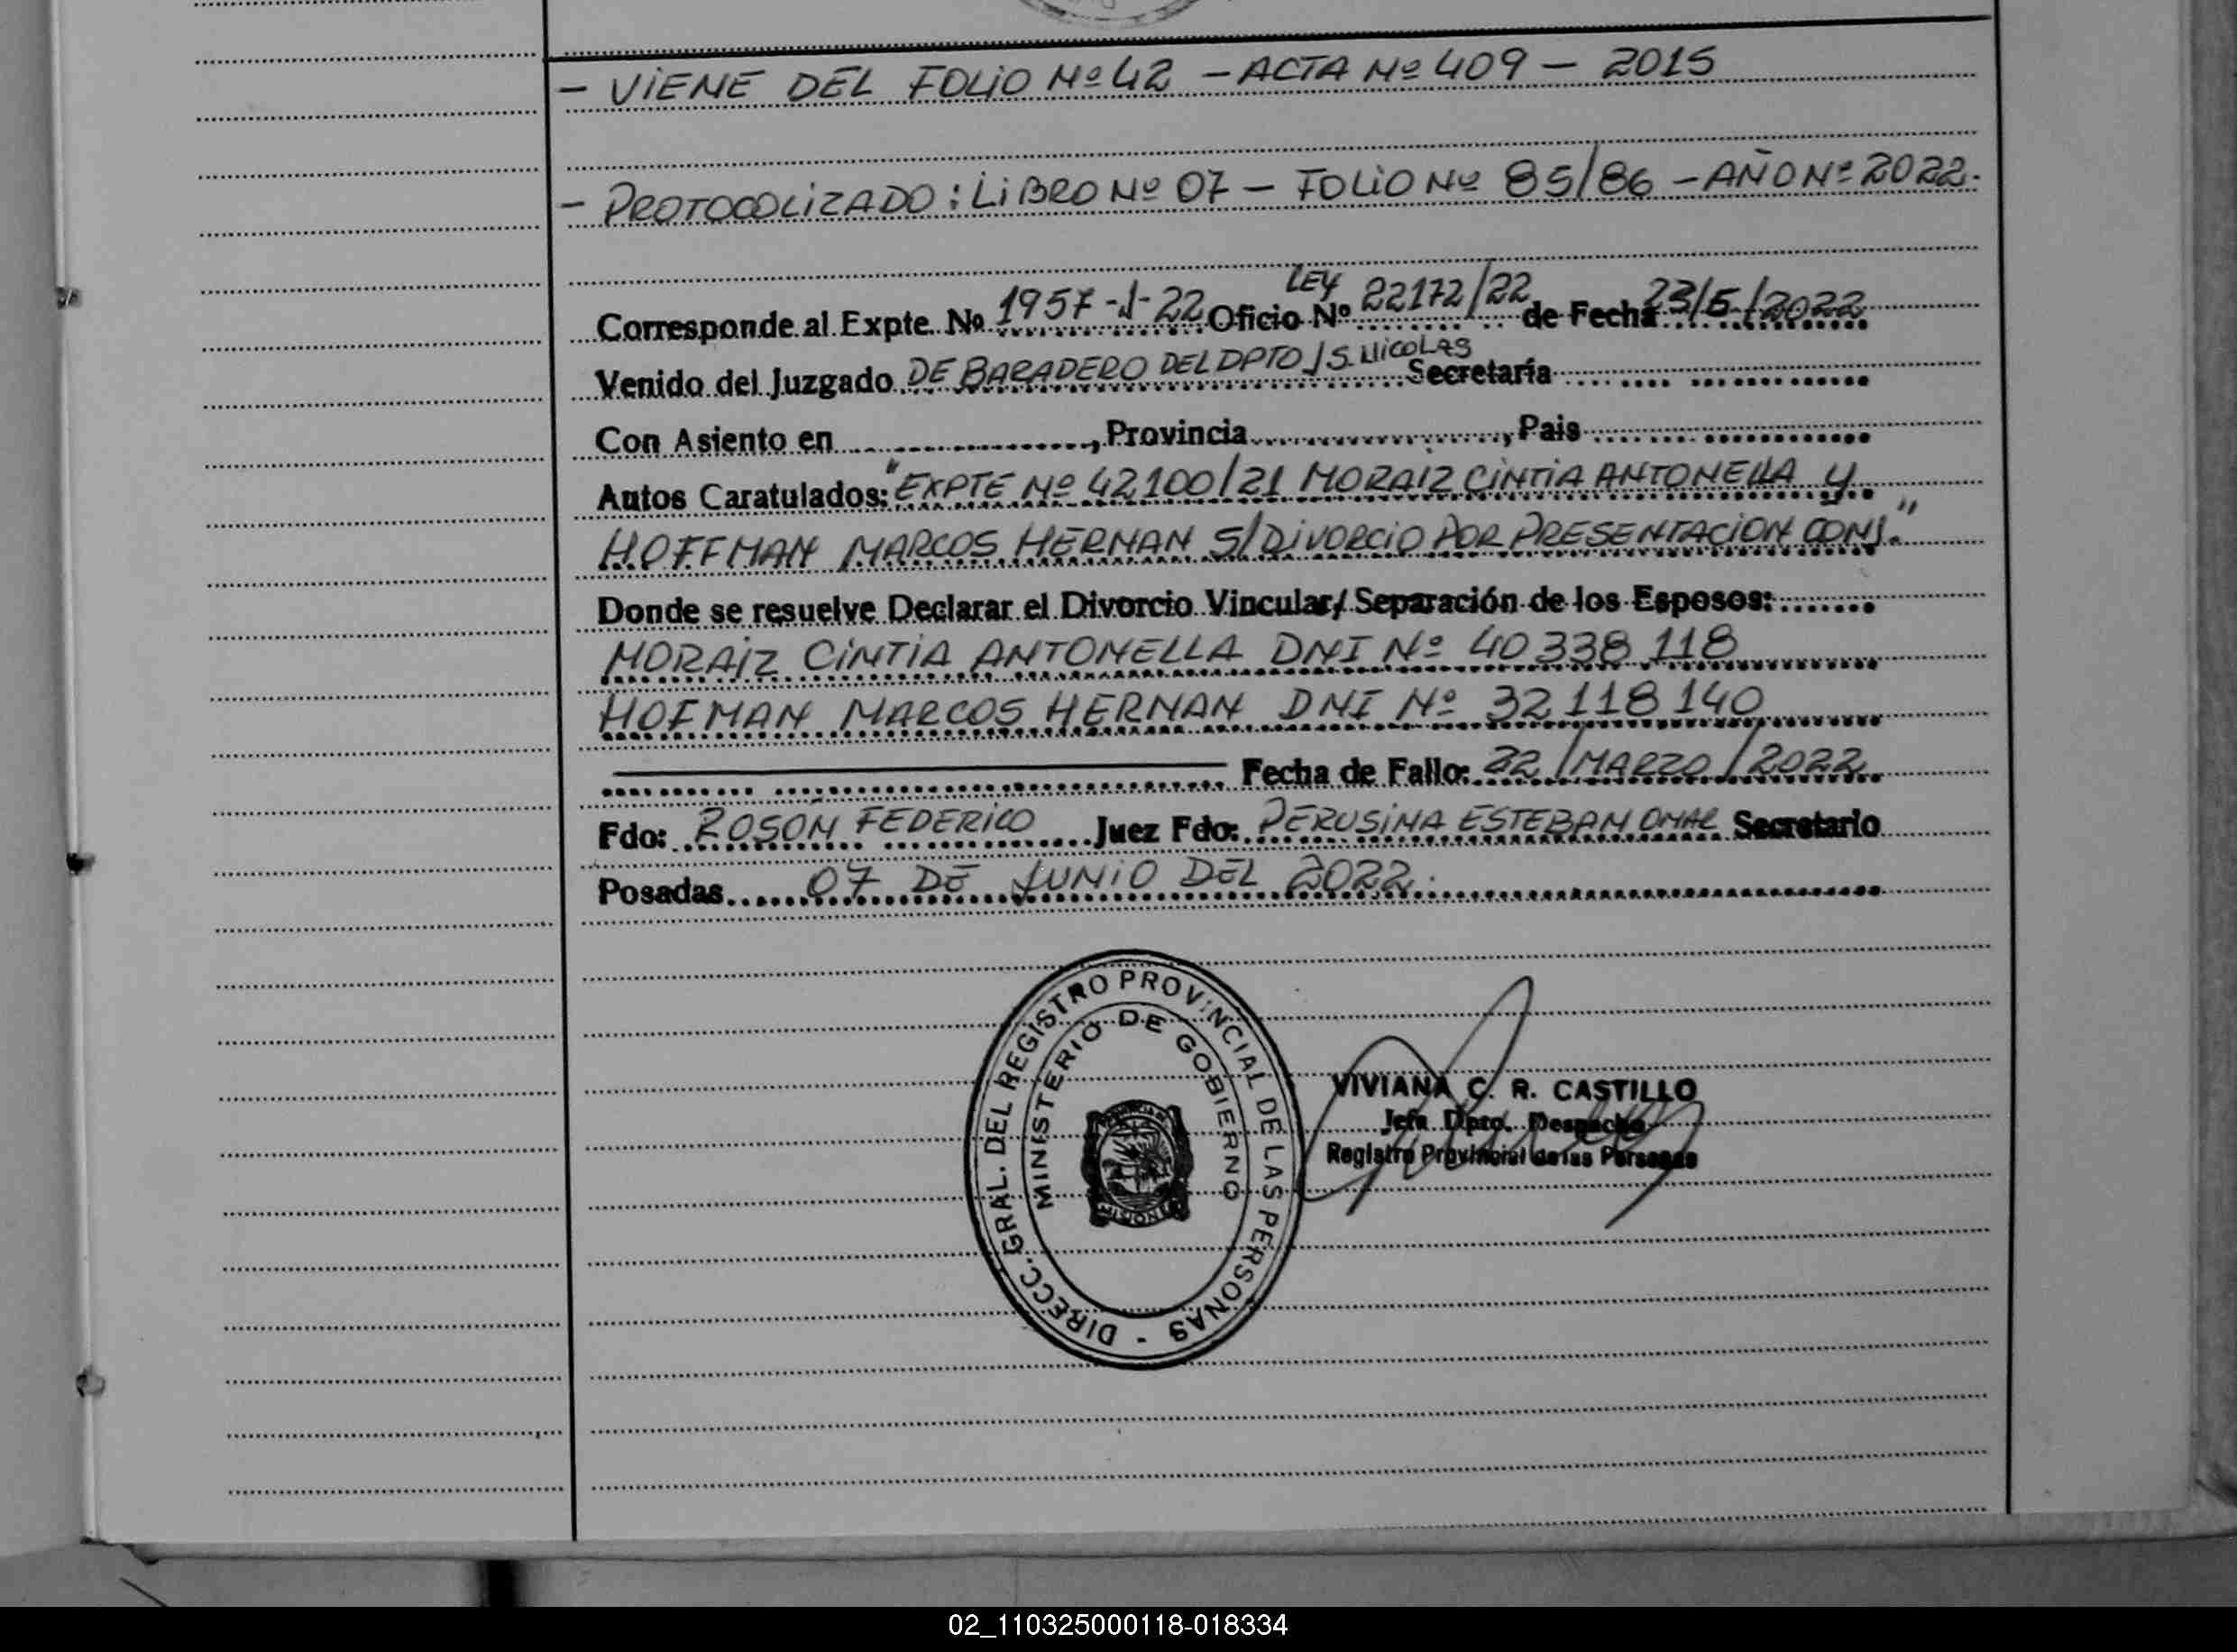 - VIENE DEL FOLIO Nº 42 - ACTA Nº 409 - 2015
- PROTOCOLIZADO: LIBRO Nº 07 - FOLIO Nº 85/86 - AÑO Nº 2022.
Corresponde al Expte. Nº 1957-J-22 Oficio Nº LEY 22172/22 de Fecha 23/5/2022
Venido del Juzgado DE BARADERO DEL DPTO J S. NICOLAS Secretaría
Con Asiento en, Provincia, Pais
Autos Caratulados: "EXPTE Nº 42100/21 MORAIZ CINTIA ANTONELLA y
HOFFMAN MARCOS HERNAN S/DIVORCIO POR PRESENTACION CONJ."
Donde se resuelve Declarar el Divorcio Vincular/ Separación de los Esposos:
MORAIZ CINTIA ANTONELLA DNI Nº 40338118
HOFMAN MARCOS HERNAN DNI Nº 32118140
Fecha de Fallo: 22/MARZO/2022
Fdo: ROSON FEDERICO Juez Fdo: PERUSINA ESTEBAN OMAR Secretario
Posadas 07 DE JUNIO DEL 2022.
DIRECC. GRAL. DEL REGISTRO PROVINCIAL DE LAS PERSONAS -
MINISTERIO DE GOBIERNO
MISIONES
VIVIANA C. R. CASTILLO
Jefa Dpto. Despacho
Registro Provincial de las Personas
02_110325000118-018334